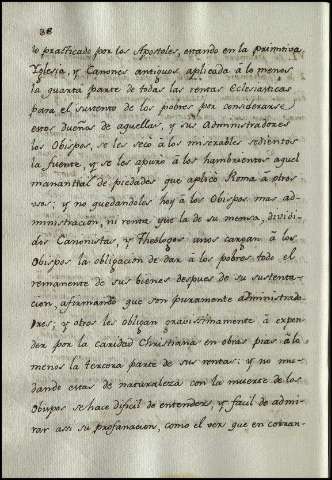 38
lo practicado por los Apostoles, estando en la primitiva
Yglesia, y Canones antiguos aplicada â lo menos
la quarta parte de todas las rentas Eclesiasticas
para el sustento de los pobres por considerarse
estos dueños de aquellas, y sus Administradores
los Obispos, se les secò â los miserables sedientos
la fuente, y se les apurò â los hambrientos aquel
manantial de piedades que aplicò Roma â otros
usos; y no quedandoles hoy â los Obispos mas ad-
ministracion, ni renta que la de su mensa, dividi-
dos Canonistas, y Theologos unos cargan â los
Obispos la obligacion de dar â los pobres todo el
remanente de sus bienes despues de su sustenta-
cion, afirmando que son puramente administrado-
res, y otros les obligan gravissimamente â expen-
der por la caridad Christiana en obras pias â lo
menos la tercera parte de sus rentas: y no mu-
dando estas de naturaleza con la muerte de los
Obispos se hace dificil de entenderse, y facil de admi-
rar assi su profanacion, como el ver que en cobran-